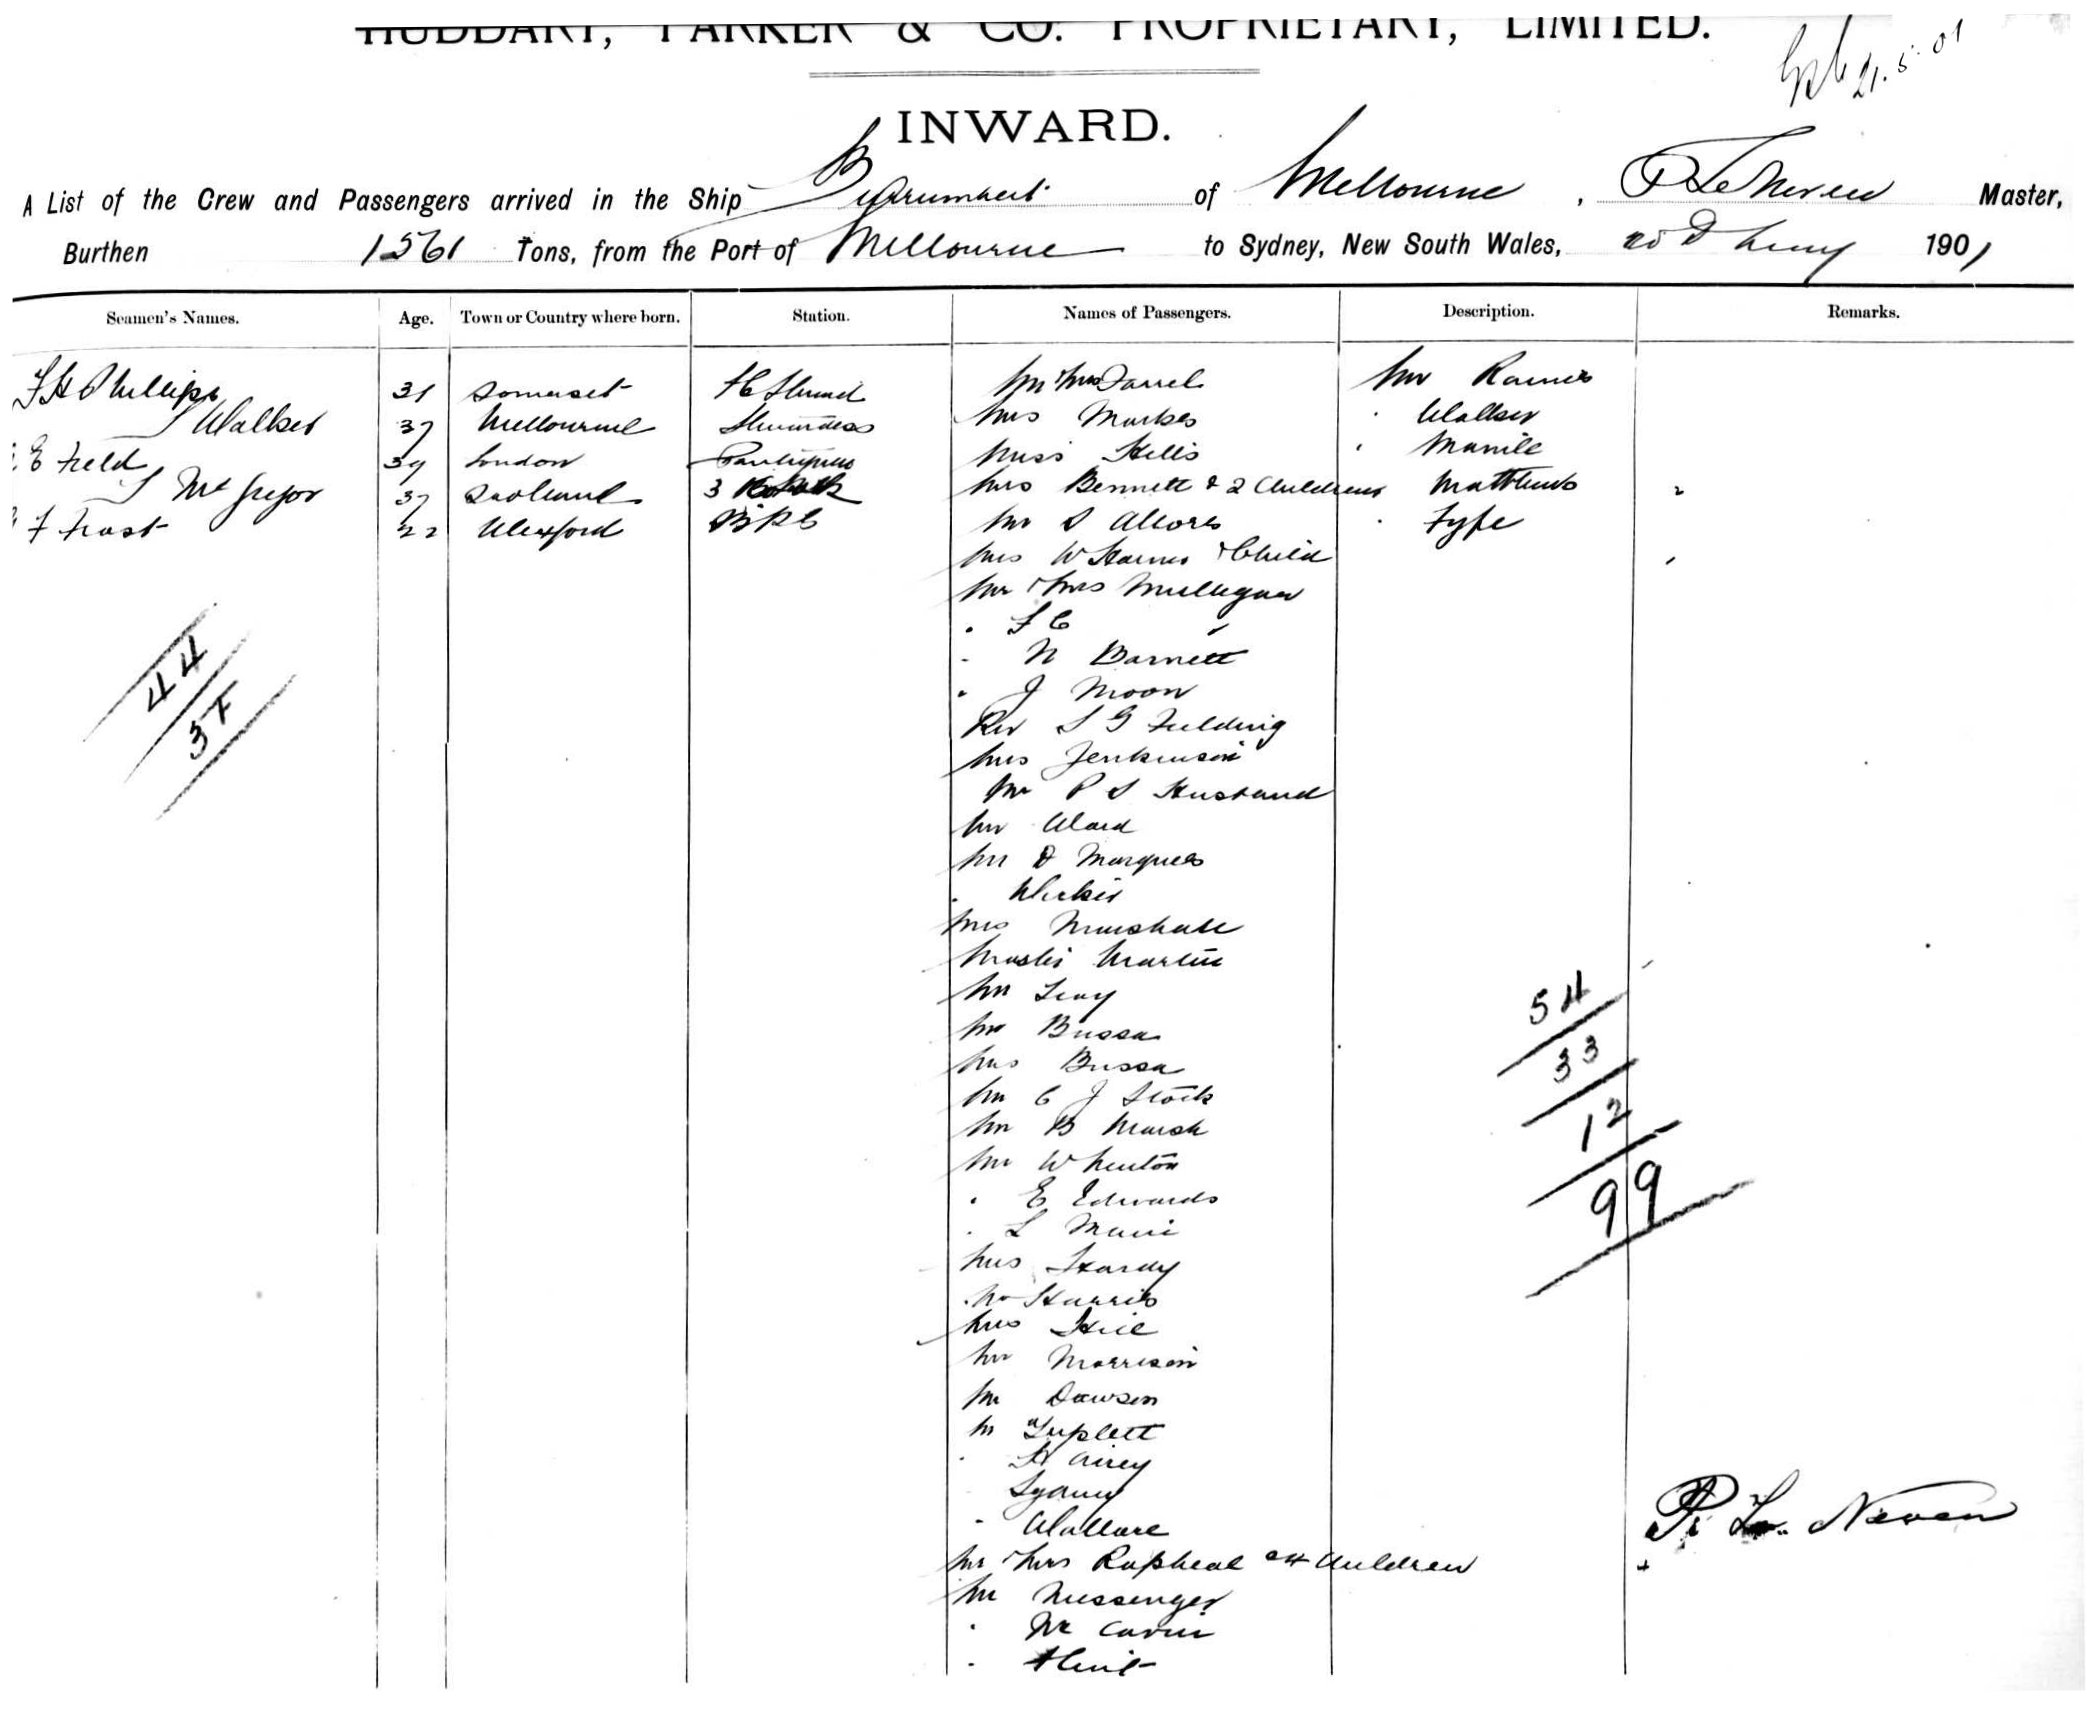 HUDDART, PARKER & CO. PROPRIETARY, LIMITED.
21.5.01
INWARD.
A List of the Crew and Passengers arrived in the Ship Burrumbeet of Melbourne, P Le Neven Master,
Burthen 1561 Tons, from the Port of Melbourne to Sydney, New South Wales, 1901
Seamen's Names. Age. Town or Country where born. Station. Names of Passengers. Description. Remarks.
F H Phillips 31 Somerset Mr & Mrs Farrel Mr Raines
S Walker 37 Melbourne Stewardess Mrs Markes " Walker
E Field 39 London Pantryman Miss Hills "
S McGregor 37 Scotland 3 Cook Mrs Bennett & 2 Childrens Matthews 2
F Frost 22 Wexford Mr S Allores " Fyfe
Mrs W Harris & Child 1
Mr & Mrs Mulligan
" F C "
" N Barnett
" J Moon
Rev S G Fielding
Mrs Jenkinson
Mr P S Husband
Mr Ward
Mr D Marques
"
Mrs Marshall
Master Martin
Mr Levy
Mr Bussa
Mrs Bussa
Mr C J Stock
Mr B Marsh
Mr W
" E Edwards
" L
Mrs Hardy
Mr Harris
Mrs Hill
Mr Morrison
Mr Dawson
Mr Triplett
" H Airey
" Wallace
Mr & Mrs Rapheal & 4 Children 4
Mr Messenger
"
"
44
37
54
33
12
99
P. Le Neven